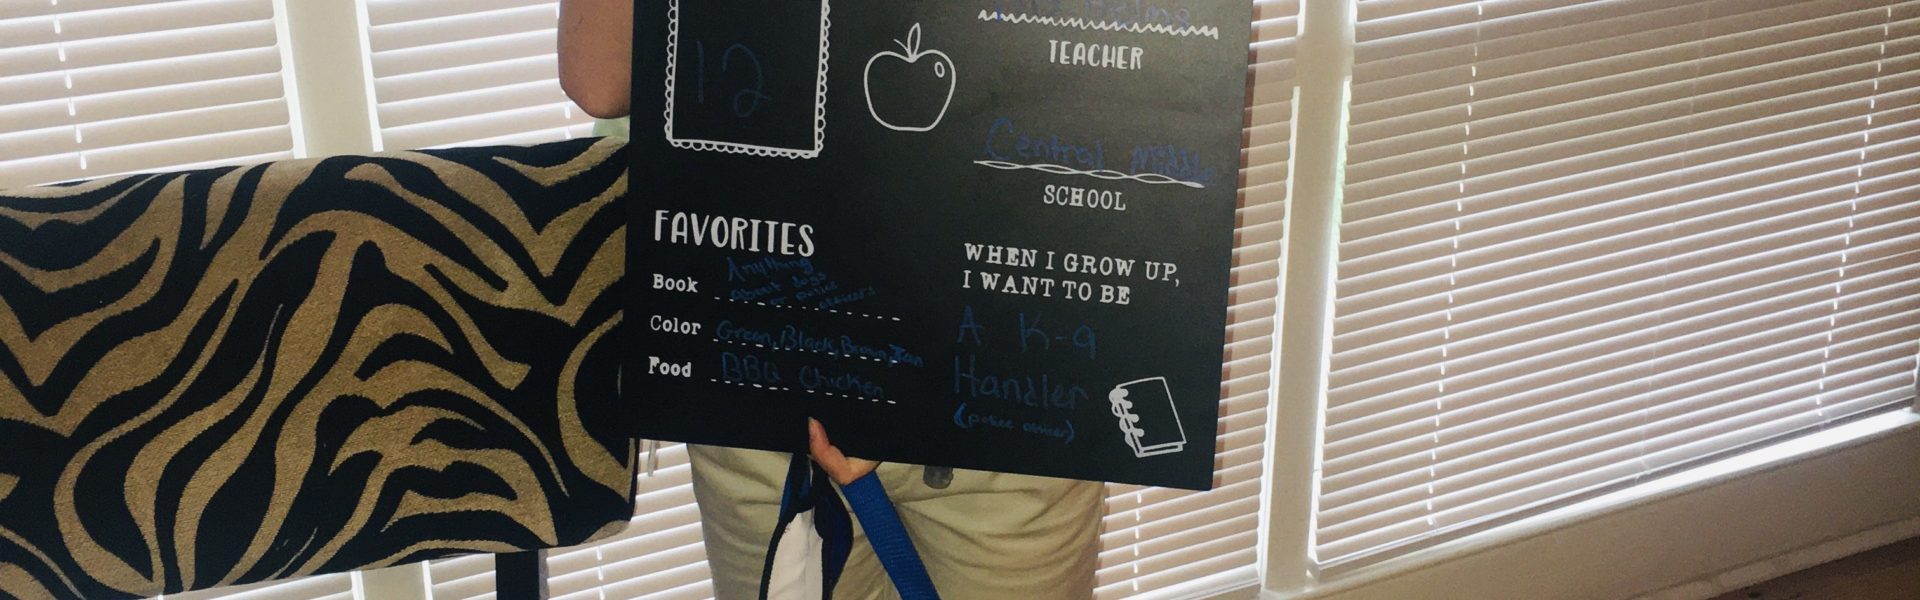 12
Helms
TEACHER
Central Middle
SCHOOL
FAVORITES
Book Anything
about dogs
or police
officers
Color Green, Black, Brown, Tan
Food BBQ Chicken
WHEN I GROW UP,
I WANT TO BE
A K-9
Handler
(police officer)